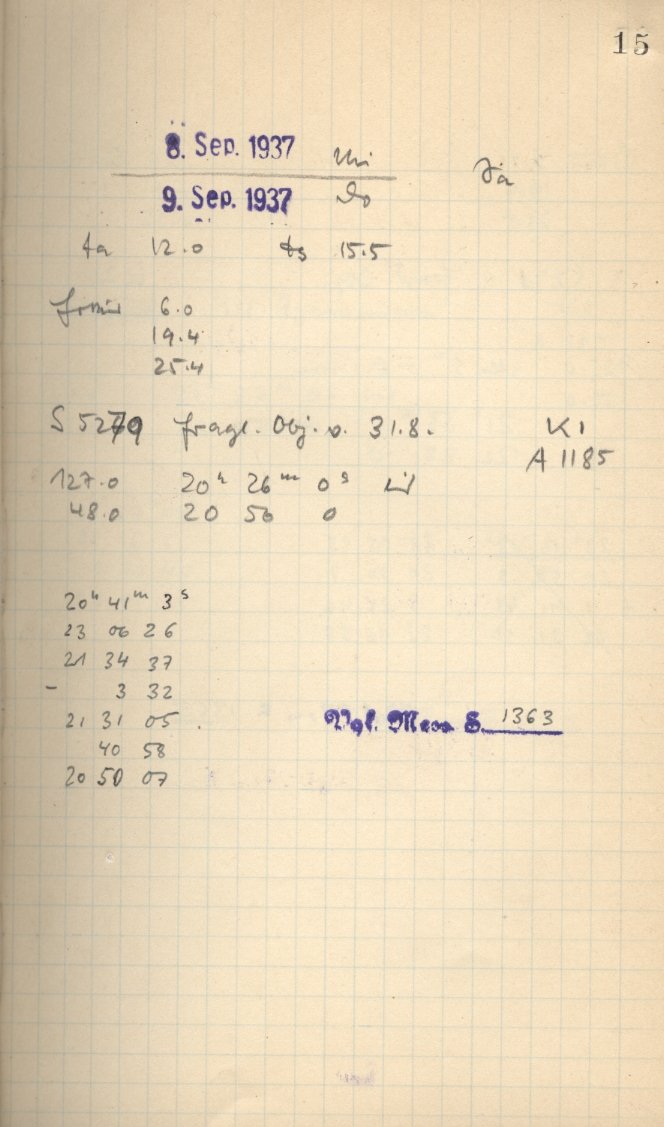 15
8. Sep. 1937 Mi
9. Sep. 1937 Do
Jä
ta 12.0 ts 15.5
6.0
19.4
25.4
S 5279 fragl. Obj. v. 31.8.
K1
A 1185
127.0 20h 26m 0s
48.0 20 50 0
20h 41m 3s
23 06 26
21 34 37
- 3 32
21 31 05.
40 58
20 50 07
Vgl. Mess S. 1363